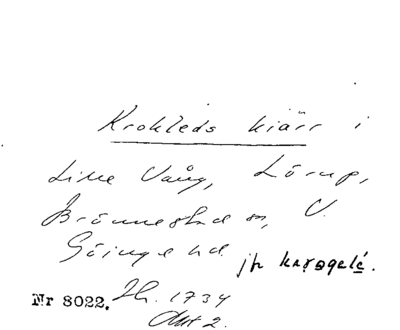 Krokleds kiärr i
Lilla Vång, Lörup,
Brönnestad sn, V.
Göinge hd. jfr
Nr 8022. Sk. 1734
Akt 2.